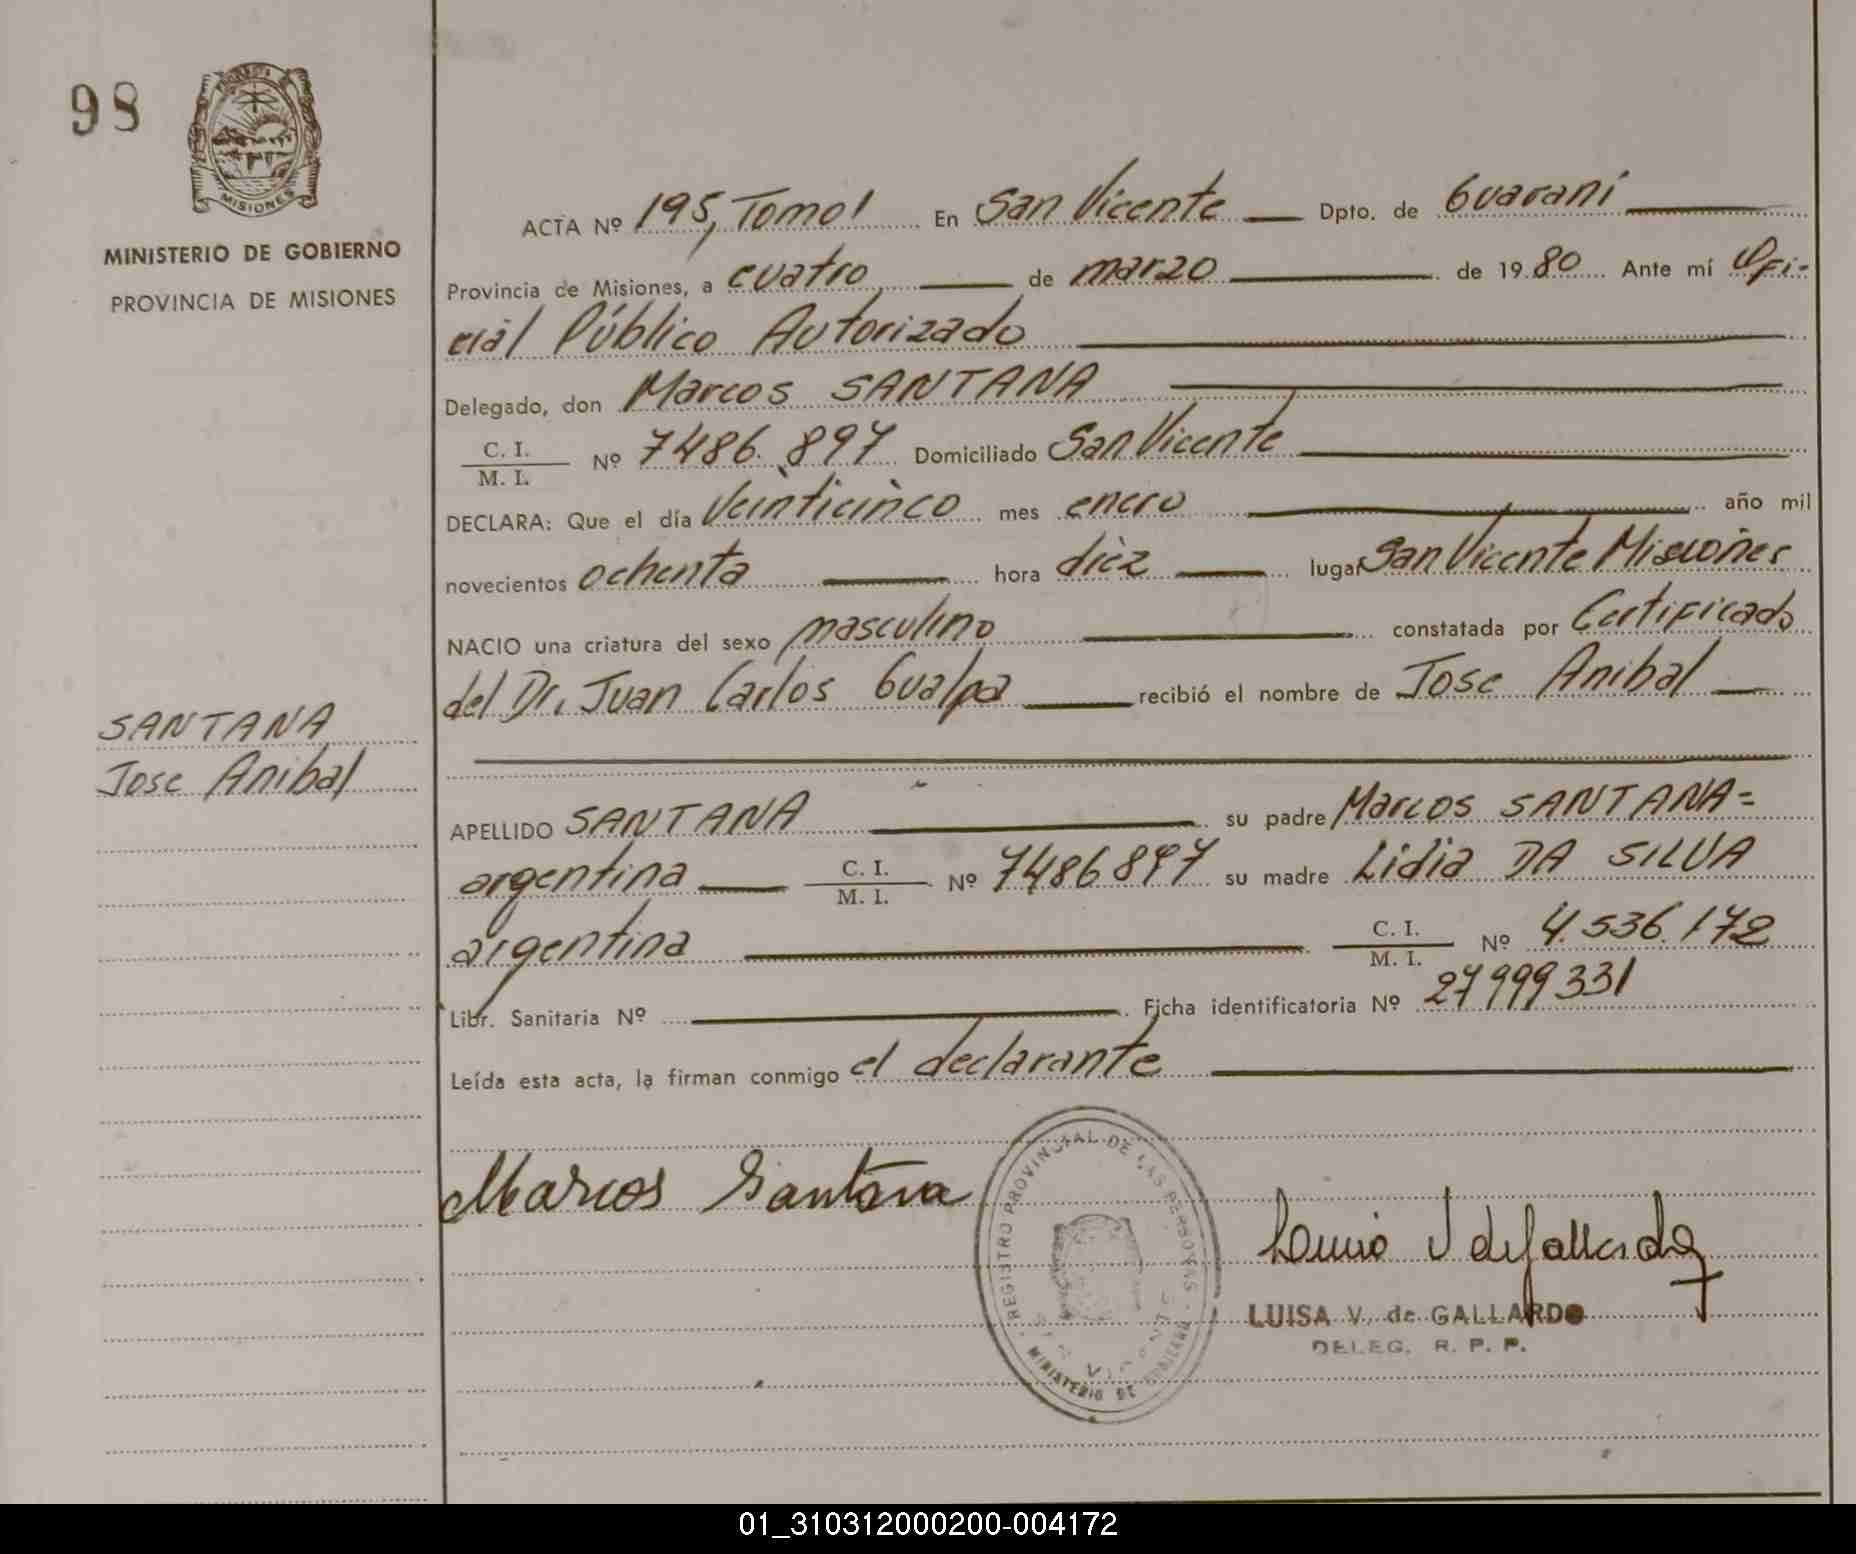 98
MISIONES
MINISTERIO DE GOBIERNO
PROVINCIA DE MISIONES
SANTANA
Jose Anibal
ACTA Nº 195, Tomo I En San Vicente Dpto. de Guaraní
Provincia de Misiones, a cuatro de marzo de 1980 Ante mí Ofi-
cial Público Autorizado
Delegado, don Marcos SANTANA
C. I.
M. I. Nº 7486.897 Domiciliado San Vicente
DECLARA: Que el día Veinticinco mes enero año mil
novecientos ochenta hora diez lugar San Vicente Misiones
NACIO una criatura del sexo masculino constatada por Certificado
del Dr. Juan Carlos Gualpa recibió el nombre de Jose Anibal
APELLIDO SANTANA su padre Marcos SANTANA=
argentina C. I. M. I. Nº 7486897 su madre Lidia DA SILVA
argentina C. I. M. I. Nº 4.536.172
Libr. Sanitaria Nº Ficha identificatoria Nº 27999331
Leída esta acta, la firman conmigo el declarante
Marcos Santana
REGISTRO PROVINCIAL DE LAS PERSONAS
MINISTERIO DE GOBIERNO
LUISA V. de GALLARDO
DELEG. R. P. P.
01_310312000200-004172